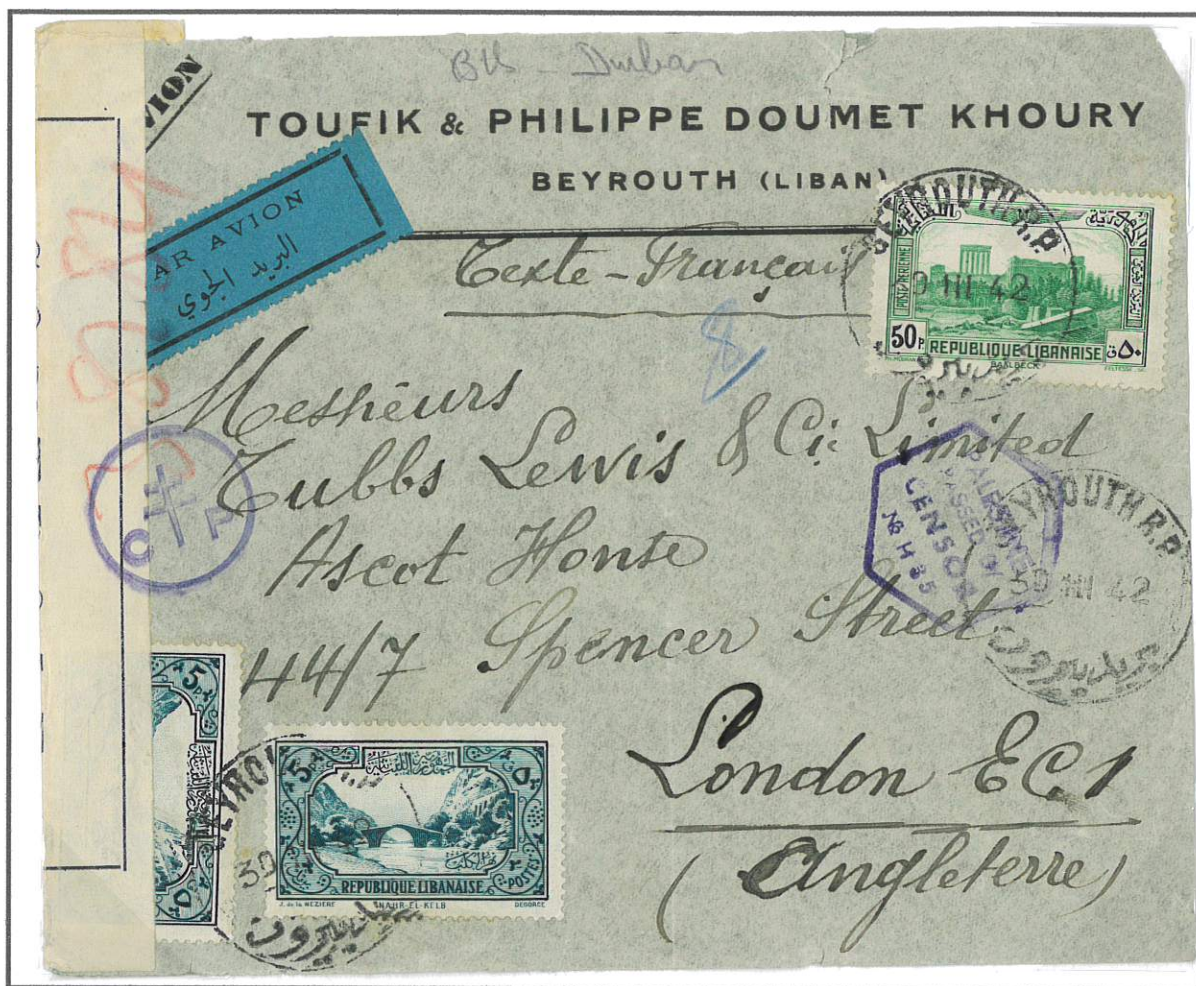 Bth - Durban
VION
TOUFIK & PHILIPPE DOUMET KHOURY
BEYROUTH (LIBAN)
AR AVION
البريد الجوي
Texte-Français
BEYROUTH R.P.
III 42
POSTE AERIENNE
50P
٥٠
REPUBLIQUE LIBANAISE
BAALBECK
8
Messieurs
Tubbs Lewis & Cie Limited
Ascot House
44/7 Spencer Street
London EC1
(Angleterre)
C F
PALESTINE
PASSED BY
CENSOR
No H 35
BEYROUTH R.P.
30 III 42
بيروت
5P
٥
BEYROU
30
5P
٥
REPUBLIQUE LIBANAISE
POSTES
J. de la NEZIERE
NAHR-EL-KELB
DEGORCE
بيروت